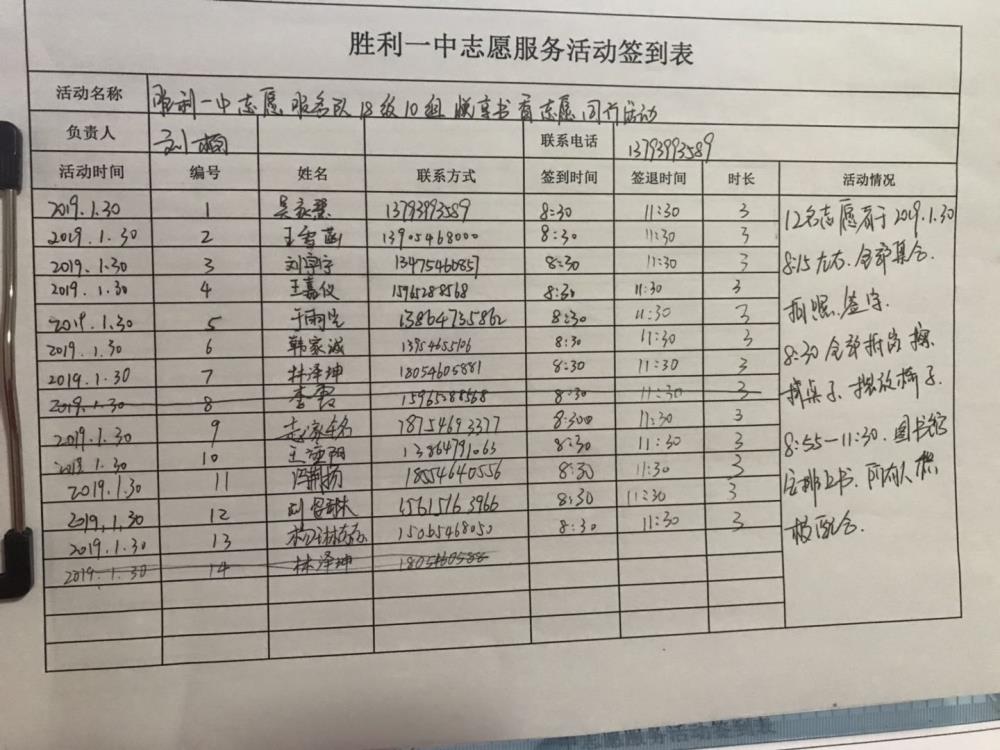 胜利一中志愿服务活动签到表
活动名称 胜利一中志愿服务队18级10组悦享书香志愿同行活动
负责人 刘 联系电话 13793993589
活动时间 编号 姓名 联系方式 签到时间 签退时间 时长 活动情况
2019.1.30 1 吴家 13793993589 8:30 11:30 3
2019.1.30 2 王雪菡 13905468000 8:30 11:30 3
2019.1.30 3 刘宇宁 13475460857 8:30 11:30 3
2019.1.30 4 王嘉仪 15965288568 8:30 11:30 3
2019.1.30 5 于雨 13864735862 8:30 11:30 3
2019.1.30 6 韩家诚 13954655106 8:30 11:30 3
2019.1.30 7 林泽坤 18054605881 8:30 11:30 3
2019.1.30 8 李霞 15965288568 8:30 11:30 3
2019.1.30 9 8:300 11:30 3
2019.1.30 10 王 阳 13864791063 8:30 11:30 3
2019.1.30 11 扬 18554640556 8:30 11:30 3
2019.1.30 12 刘 15615163966 8:30 11:30 3
2019.1.30 13 杨 15065468050 8:30 11:30 3
2019.1.30 14 林泽坤
12名志愿者于2019.1.30
8:15左右.全部集合.
拍照.签字.
8:30全部到岗擦
擦桌子.摆放椅子.
8:55—11:30.图书馆
上书.所有人积
极配合.
志愿服务活动签到表